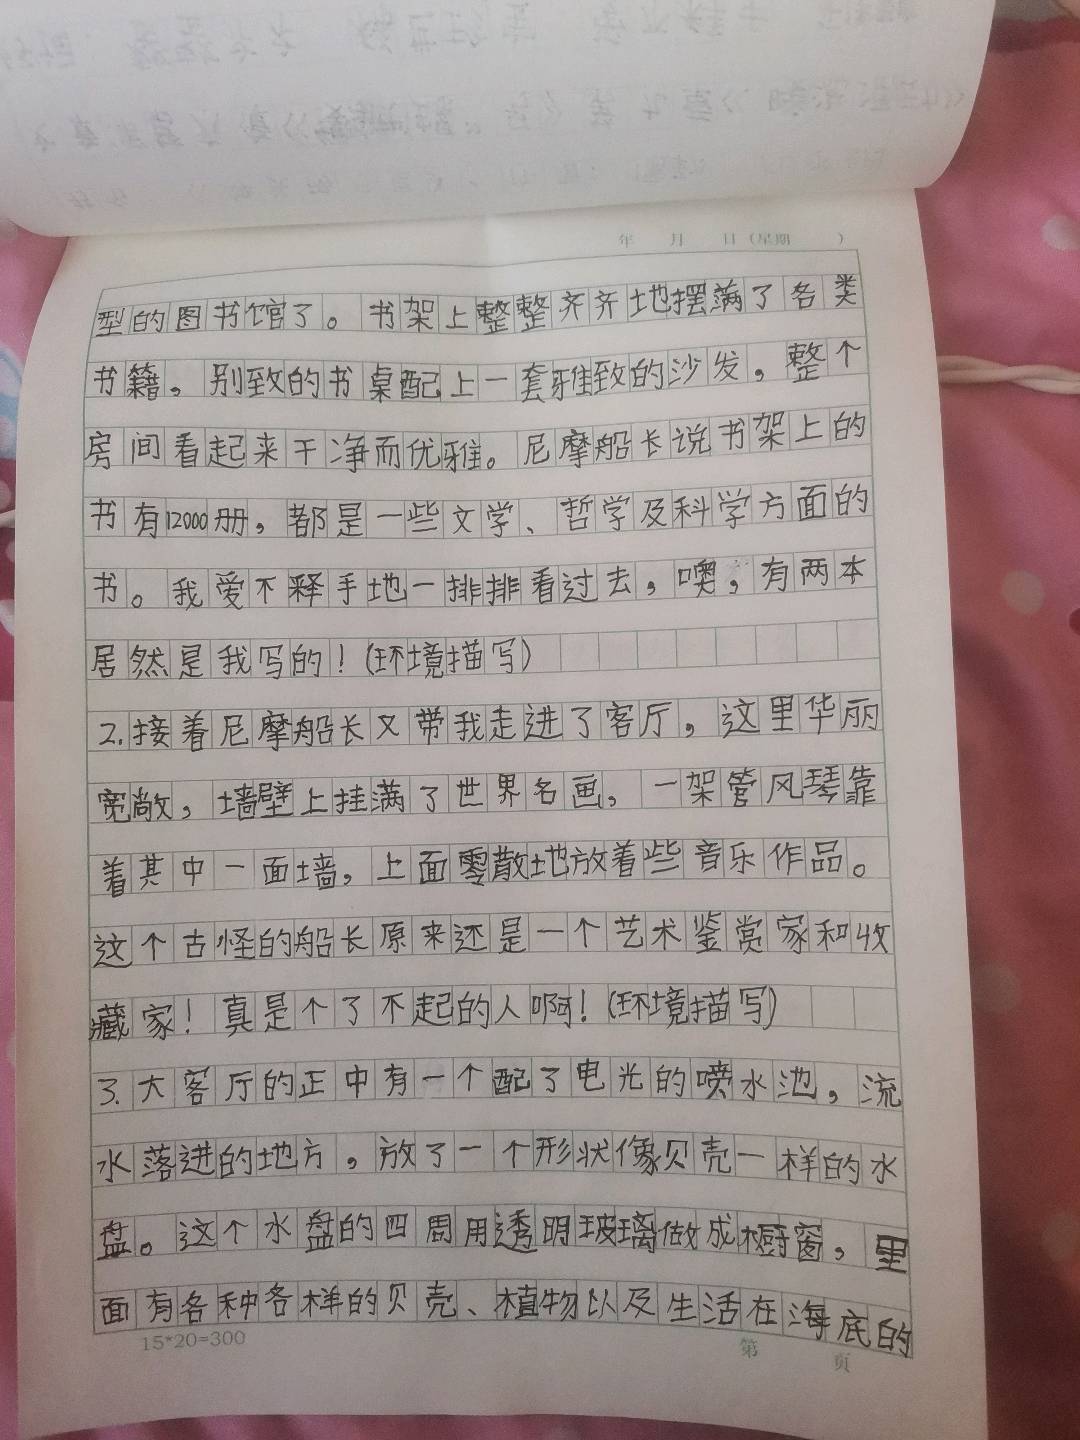 年 月 日(星期 )
型的图书馆了。书架上整整齐齐地摆满了各类
书籍，别致的书桌配上一套雅致的沙发，整个
房间看起来干净而优雅。尼摩船长说书架上的
书有12000册，都是一些文学、哲学及科学方面的
书。我爱不释手地一排排看过去，噢，有两本
居然是我写的！(环境描写)
2.接着尼摩船长又带我走进了客厅，这里华丽
宽敞，墙壁上挂满了世界名画，一架管风琴靠
着其中一面墙，上面零散地放着些音乐作品。
这个古怪的船长原来还是一个艺术鉴赏家和收
藏家！真是个了不起的人啊！(环境描写)
3.大客厅的正中有一个配了电光的喷水池，流
水落进的地方，放了一个形状像贝壳一样的水
盘。这个水盘的四周用透明玻璃做成橱窗，里
面有各种各样的贝壳、植物以及生活在海底的
15*20=300
第 页